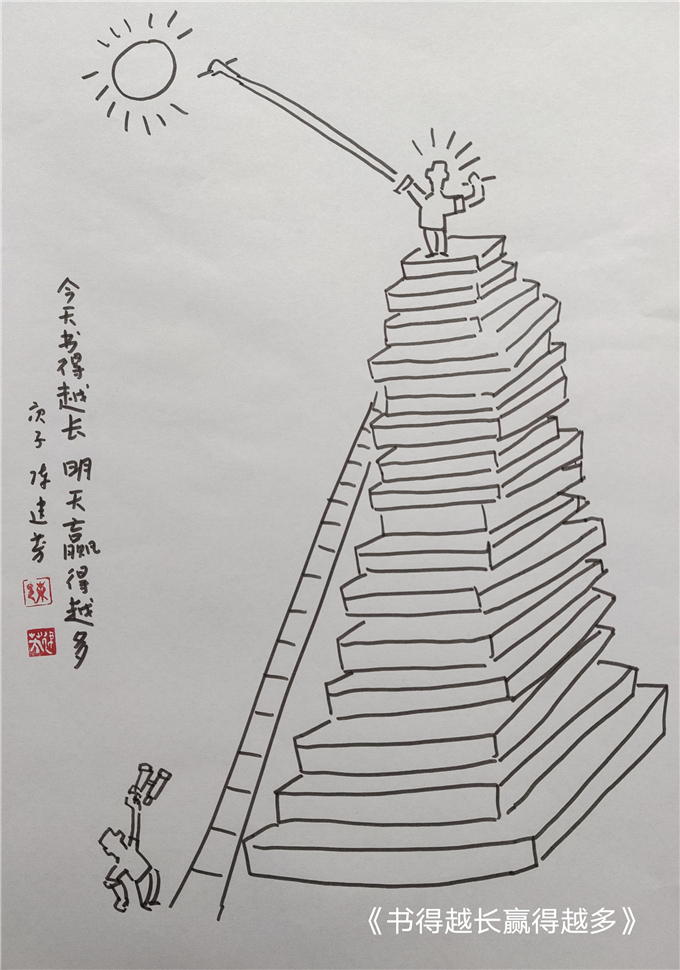 今天书得越长 明天赢得越多
次子 陈建芳
《书得越长赢得越多》